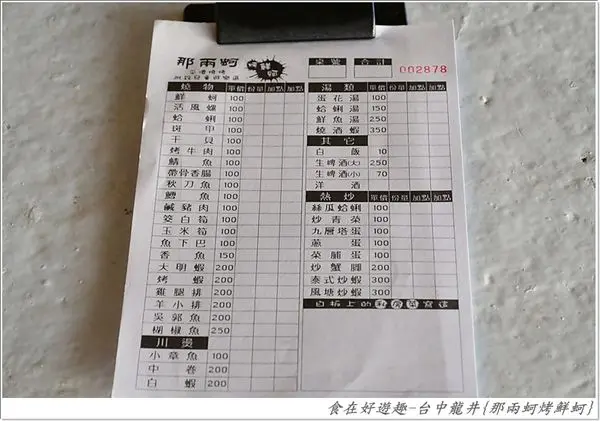 那兩蚵
桌號 合計
002878
燒物 單價 份單 加點 加點
鮮蚵 100
活風螺 100
蛤蜊 100
斑甲 100
干貝 100
烤牛肉 100
鯖魚 100
帶骨香腸 100
秋刀魚 100
鱈魚 100
鹹豬肉 100
筊白筍 100
玉米筍 100
魚下巴 100
香魚 150
大明蝦 200
烤蝦 200
雞腿排 200
羊小排 200
吳郭魚 200
胡椒魚 250
川燙
小章魚 100
中卷 200
白蝦 200
湯類 單價 份單 加點 加點
蛋花湯 100
蛤蜊湯 150
鮮魚湯 250
燒酒蝦 350
其它
白飯 10
生啤酒(大) 250
生啤酒(小) 70
洋酒
熱炒 單價 份單 加點 加點
絲瓜蛤蜊 100
炒青菜 100
九層塔蛋 100
蔥蛋 100
菜脯蛋 100
炒蟹腳 200
泰式炒蝦 300
風塘炒蝦 300
白板上的私房菜寫這
食在好遊趣-台中龍井{那兩蚵烤鮮蚵}